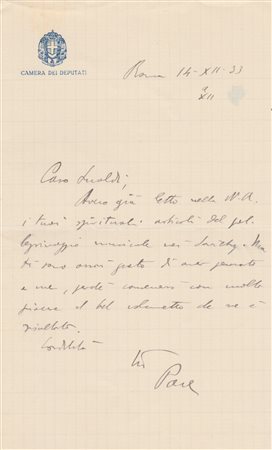 CAMERA DEI DEPUTATI
Roma 14-XII-33
XII
Caro Lualdi,
Avevo già letto nella N.A.
i tuoi spirituali articoli del
musicale nei. Ma
ti sono assai grato di aver pensato
a me, perché conservo con molto
piacere il bel volumetto che ne è
risultato.
Cordialità
tuo
Pace